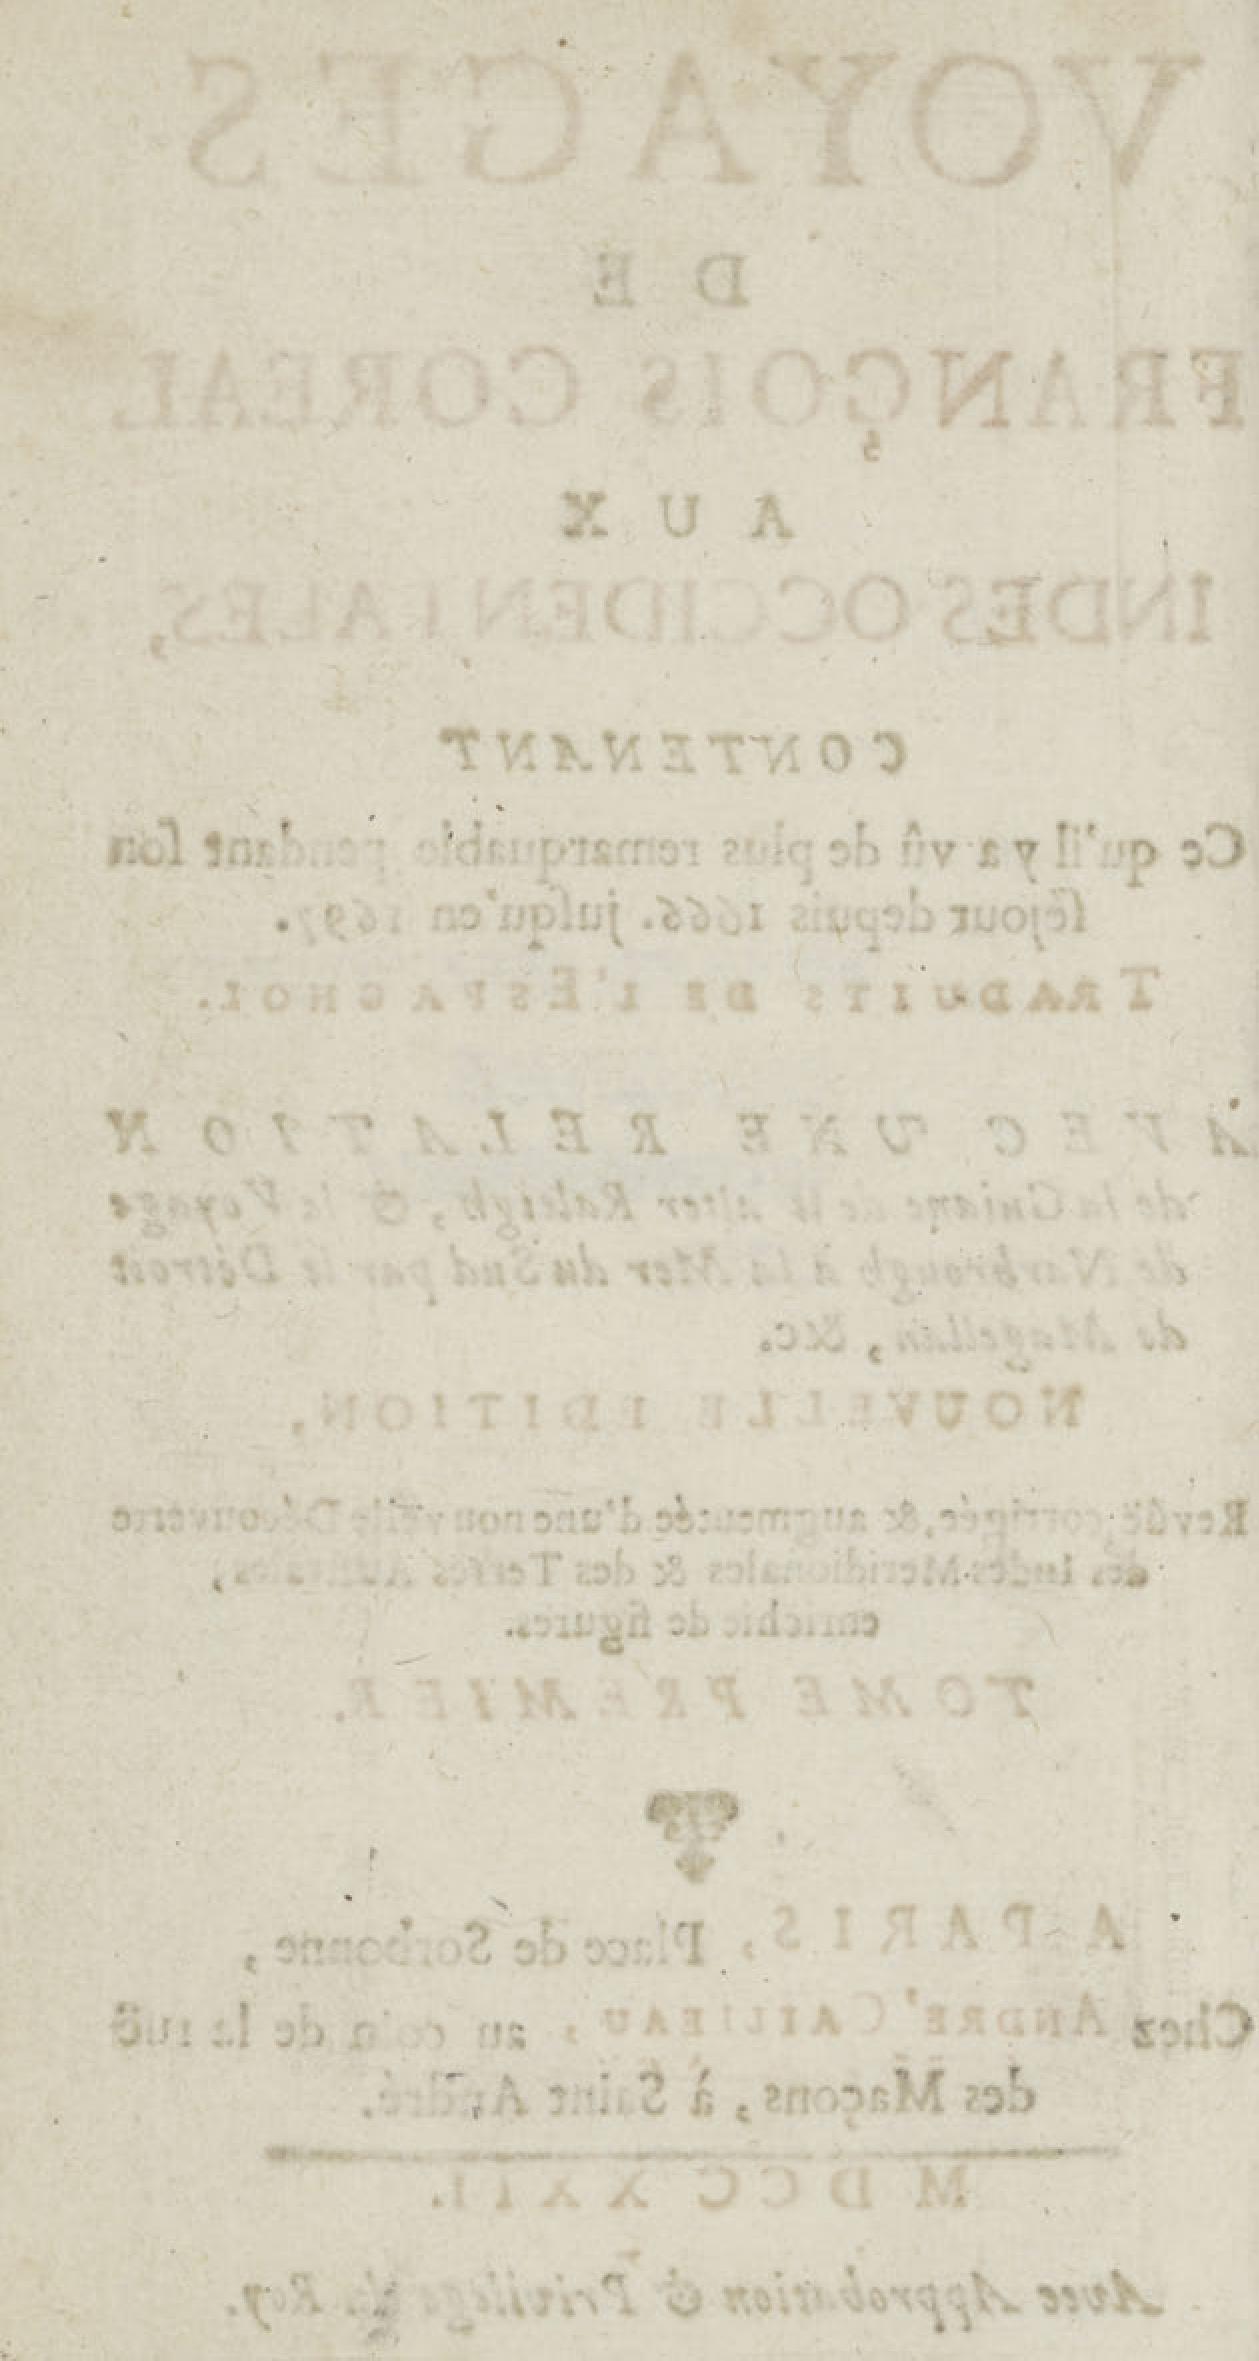 VOYAGES
DE
FRANÇOIS COREAL
AUX
INDES OCCIDENTALES,
CONTENANT
Ce qu'il y a vû de plus remarquable pendant ſon
ſéjour depuis 1666. juſqu'en 1697.
TRADUITS DE L'ESPAGNOL.
AVEC UNE RELATION
de la Guiane de Walter Raleigh, & le Voyage
de Narbrough à la Mer du Sud par le Détroit
de Magellan, &c.
NOUVELLE EDITION,
Revûë, corrigée, & augmentée d'une nouvelle Découverte
des Indes Meridionales & des Terres Auſtrales,
enrichie de figures.
TOME PREMIER.
A PARIS, Place de Sorbonne,
Chez ANDRE' CAILLEAU, au coin de la ruë
des Maçons, à Saint André.
M DCC XXII.
Avec Approbation & Privilege du Roy.